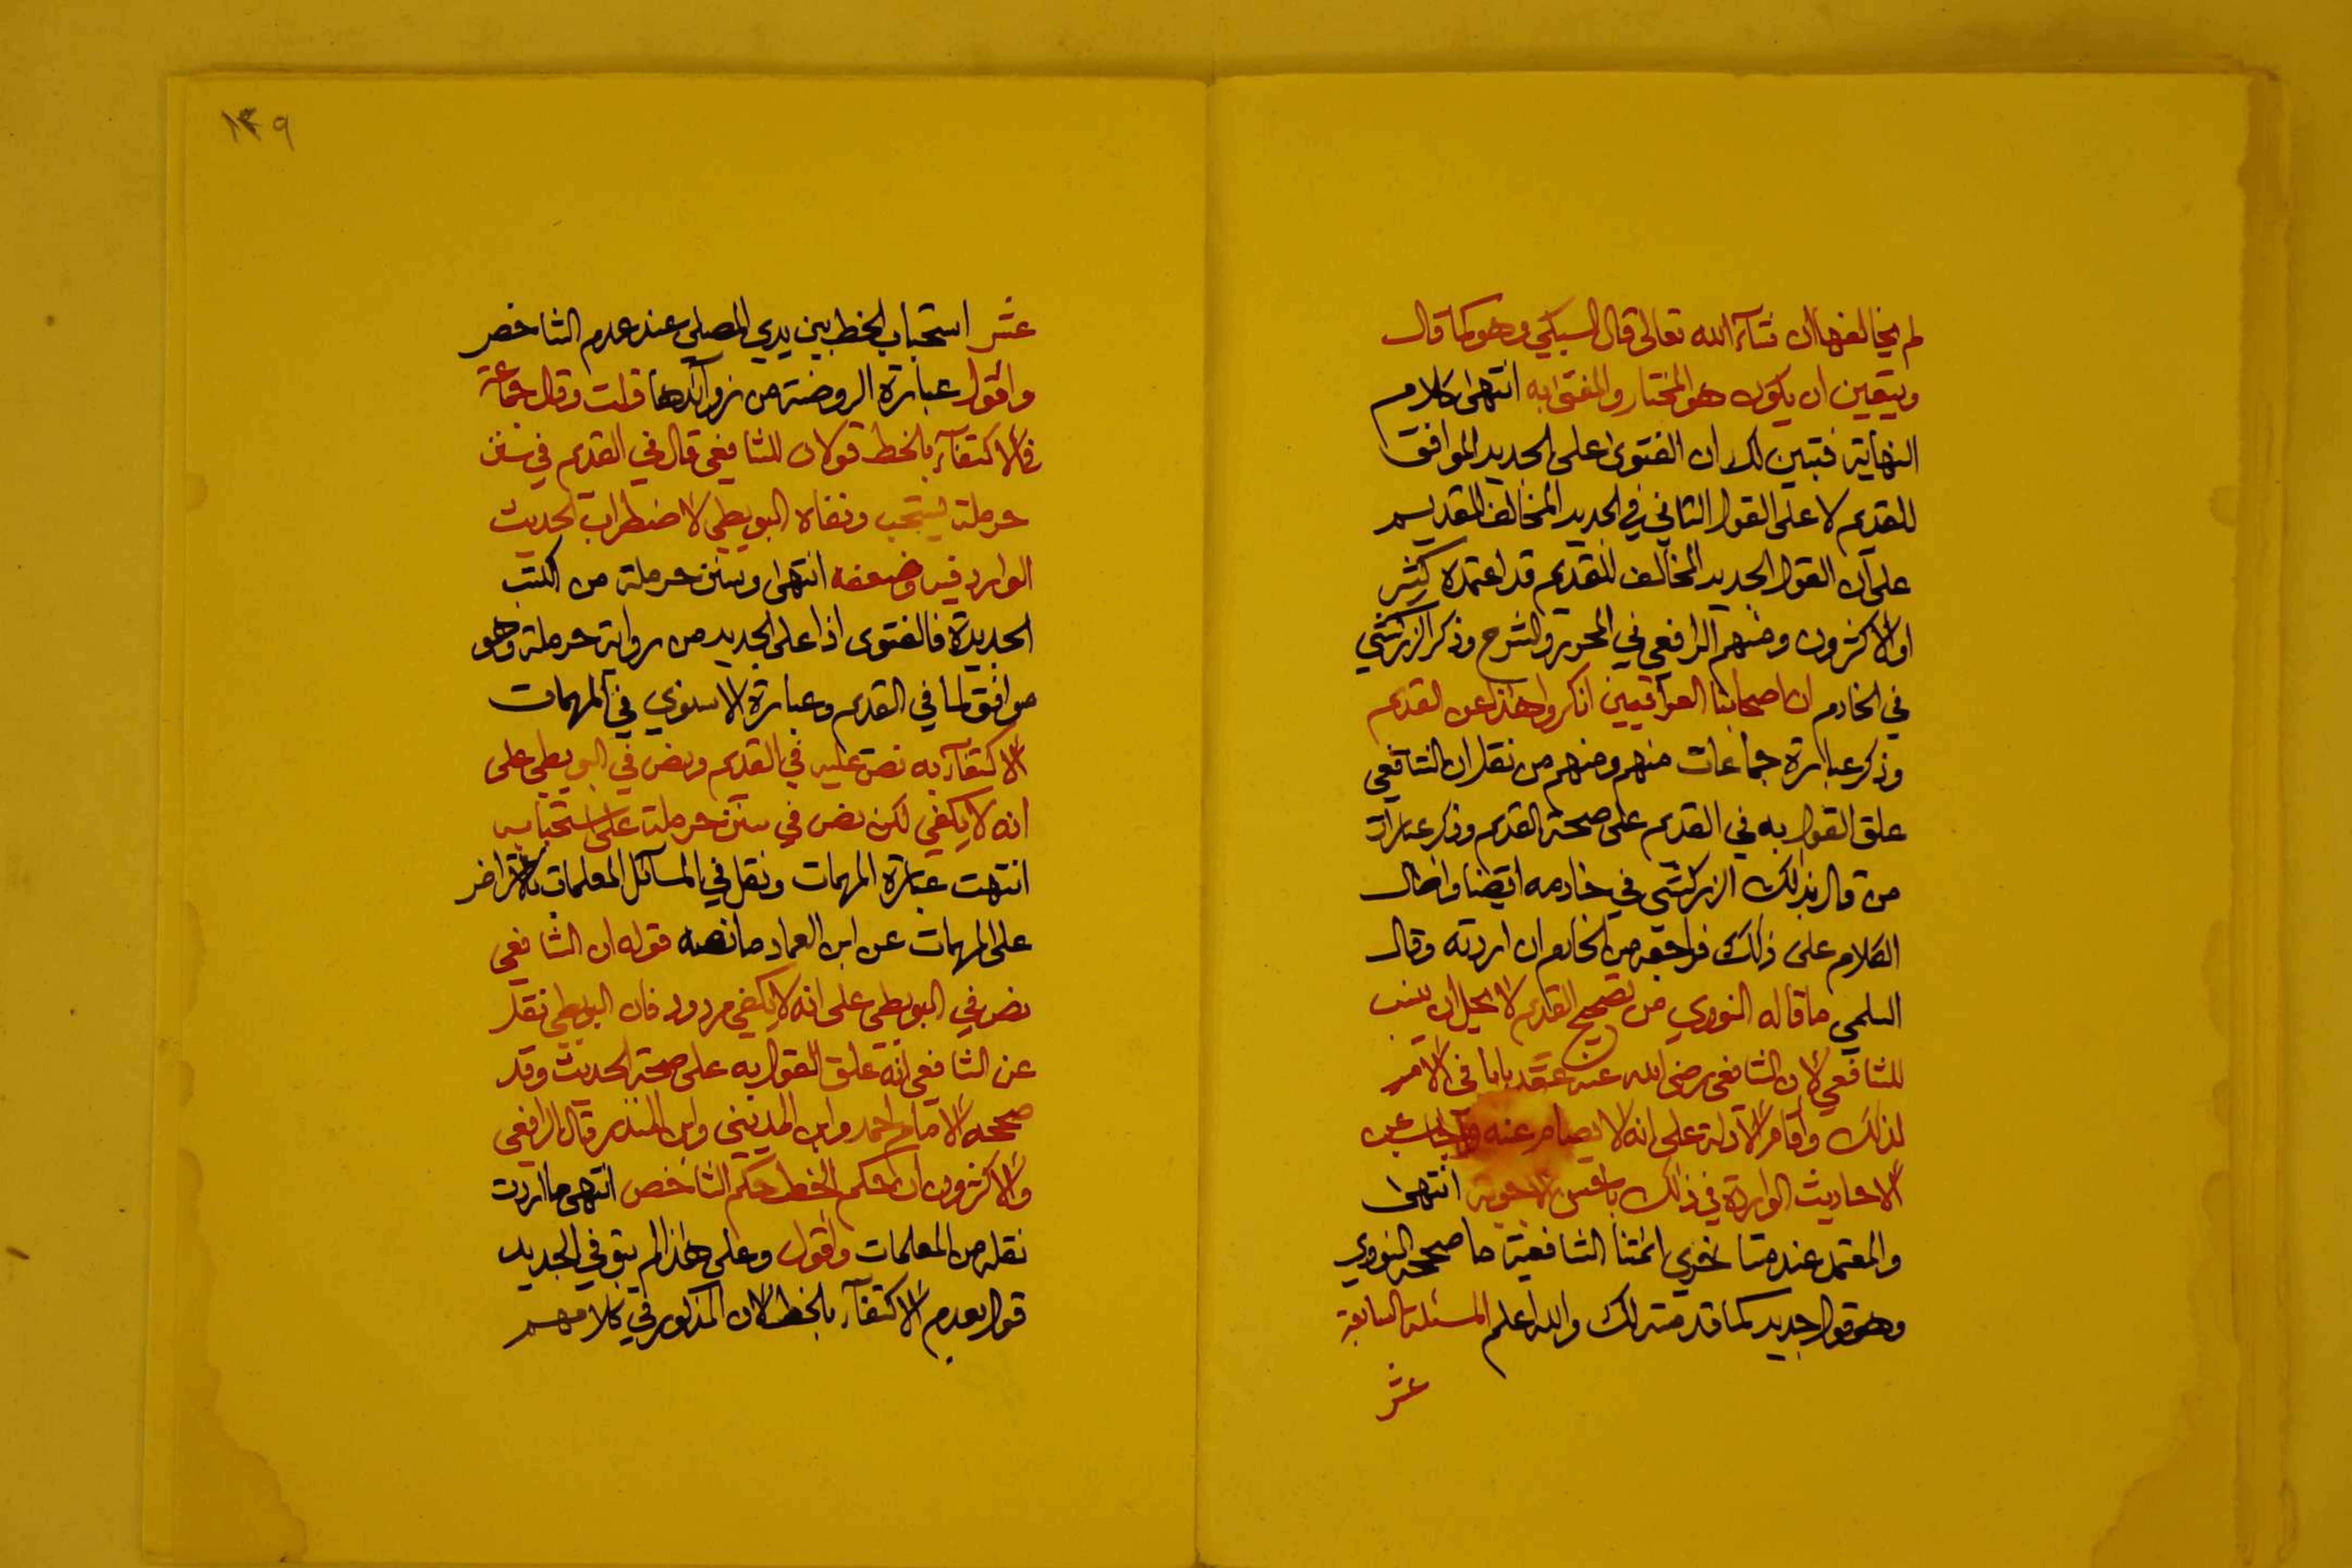 لم يخالفها ان شآء الله تعالى قال السبكي وهو كما قال
ويتعين ان يكون هو المختار والمفتى به انتهى كلام
النهاية فتبين لك ان الفتوى على الجديد الموافق
للقديم لا على القول الثاني في الجديد المخالف للقديم
على ان القول الجديد المخالف للقديم قد اعتمده كثير
او الاكثرون ومنهم الرافعي في المحرر والشرح وذكر الزركشي
في الخادم ان اصحابنا العراقيين انكروا هذا عن القديم
وذكر عبارة جماعات منهم ومنهم من نقل ان الشافعي
علق القول به في القديم على صحة القديم وذكر عبارات
من قال بذلك الزركشي في خادمه ايضا واطال
الكلام على ذلك فراجعه من الخادم ان اردته وقال
السلمي ما قاله النووي من تصحيح القديم لا يحل ان ينسب
للشافعي لان الشافعي رضي الله عنه عقد بابا في الامر
لذلك واقام الادلة على انه لا يصام عنه واجاب عن
الاحاديث الواردة في ذلك باحسن الاجوبة انتهى
والمعتمد عند متأخري ائمتنا الشافعية ما صححه النووي
وهو قول جديد كما قدمته لك والله اعلم المسئلة السابعة
عشر
١٣٩
عشر استحباب الخط بين يدي المصلي عند عدم الشاخص
واقول عبارة الروضة من زوآئدها قلت وقال جماعة
في الاكتفآء بالخط قولان للشافعي قال في القديم في سنن
حرملة يستحب ونفاه البويطي لاضطراب الحديث
الوارد فيه وضعفه انتهى وسنن حرملة من الكتب
الجديدة فالفتوى اذا على الجديد من رواية حرملة وهو
موافق لما في القديم وعبارة الاسنوي في المهمات
الاكتفآء به نص عليه في القديم ونص في البويطي على
انه لا يكفي لكن نص في سنن حرملة على استحبابه
انتهت عبارة المهمات ونقل في المسآئل المعلمات بالاعتراض
على المهمات عن ابن العماد ما نصه قوله ان الشافعي
نص في البويطي على انه لا يكفي مردود فان البويطي نقل
عن الشافعي انه علق القول به على صحة الحديث وقد
صححه الامام احمد وابن المديني وابن المنذر قال الرافعي
والاكثرون ان حكم الخط حكم الشاخص انتهى ما اردت
نقله من المعلمات واقول وعلى هذا لم يبق في الجديد
قول بعدم الاكتفآء بالخط لان المذكور في كلامهم